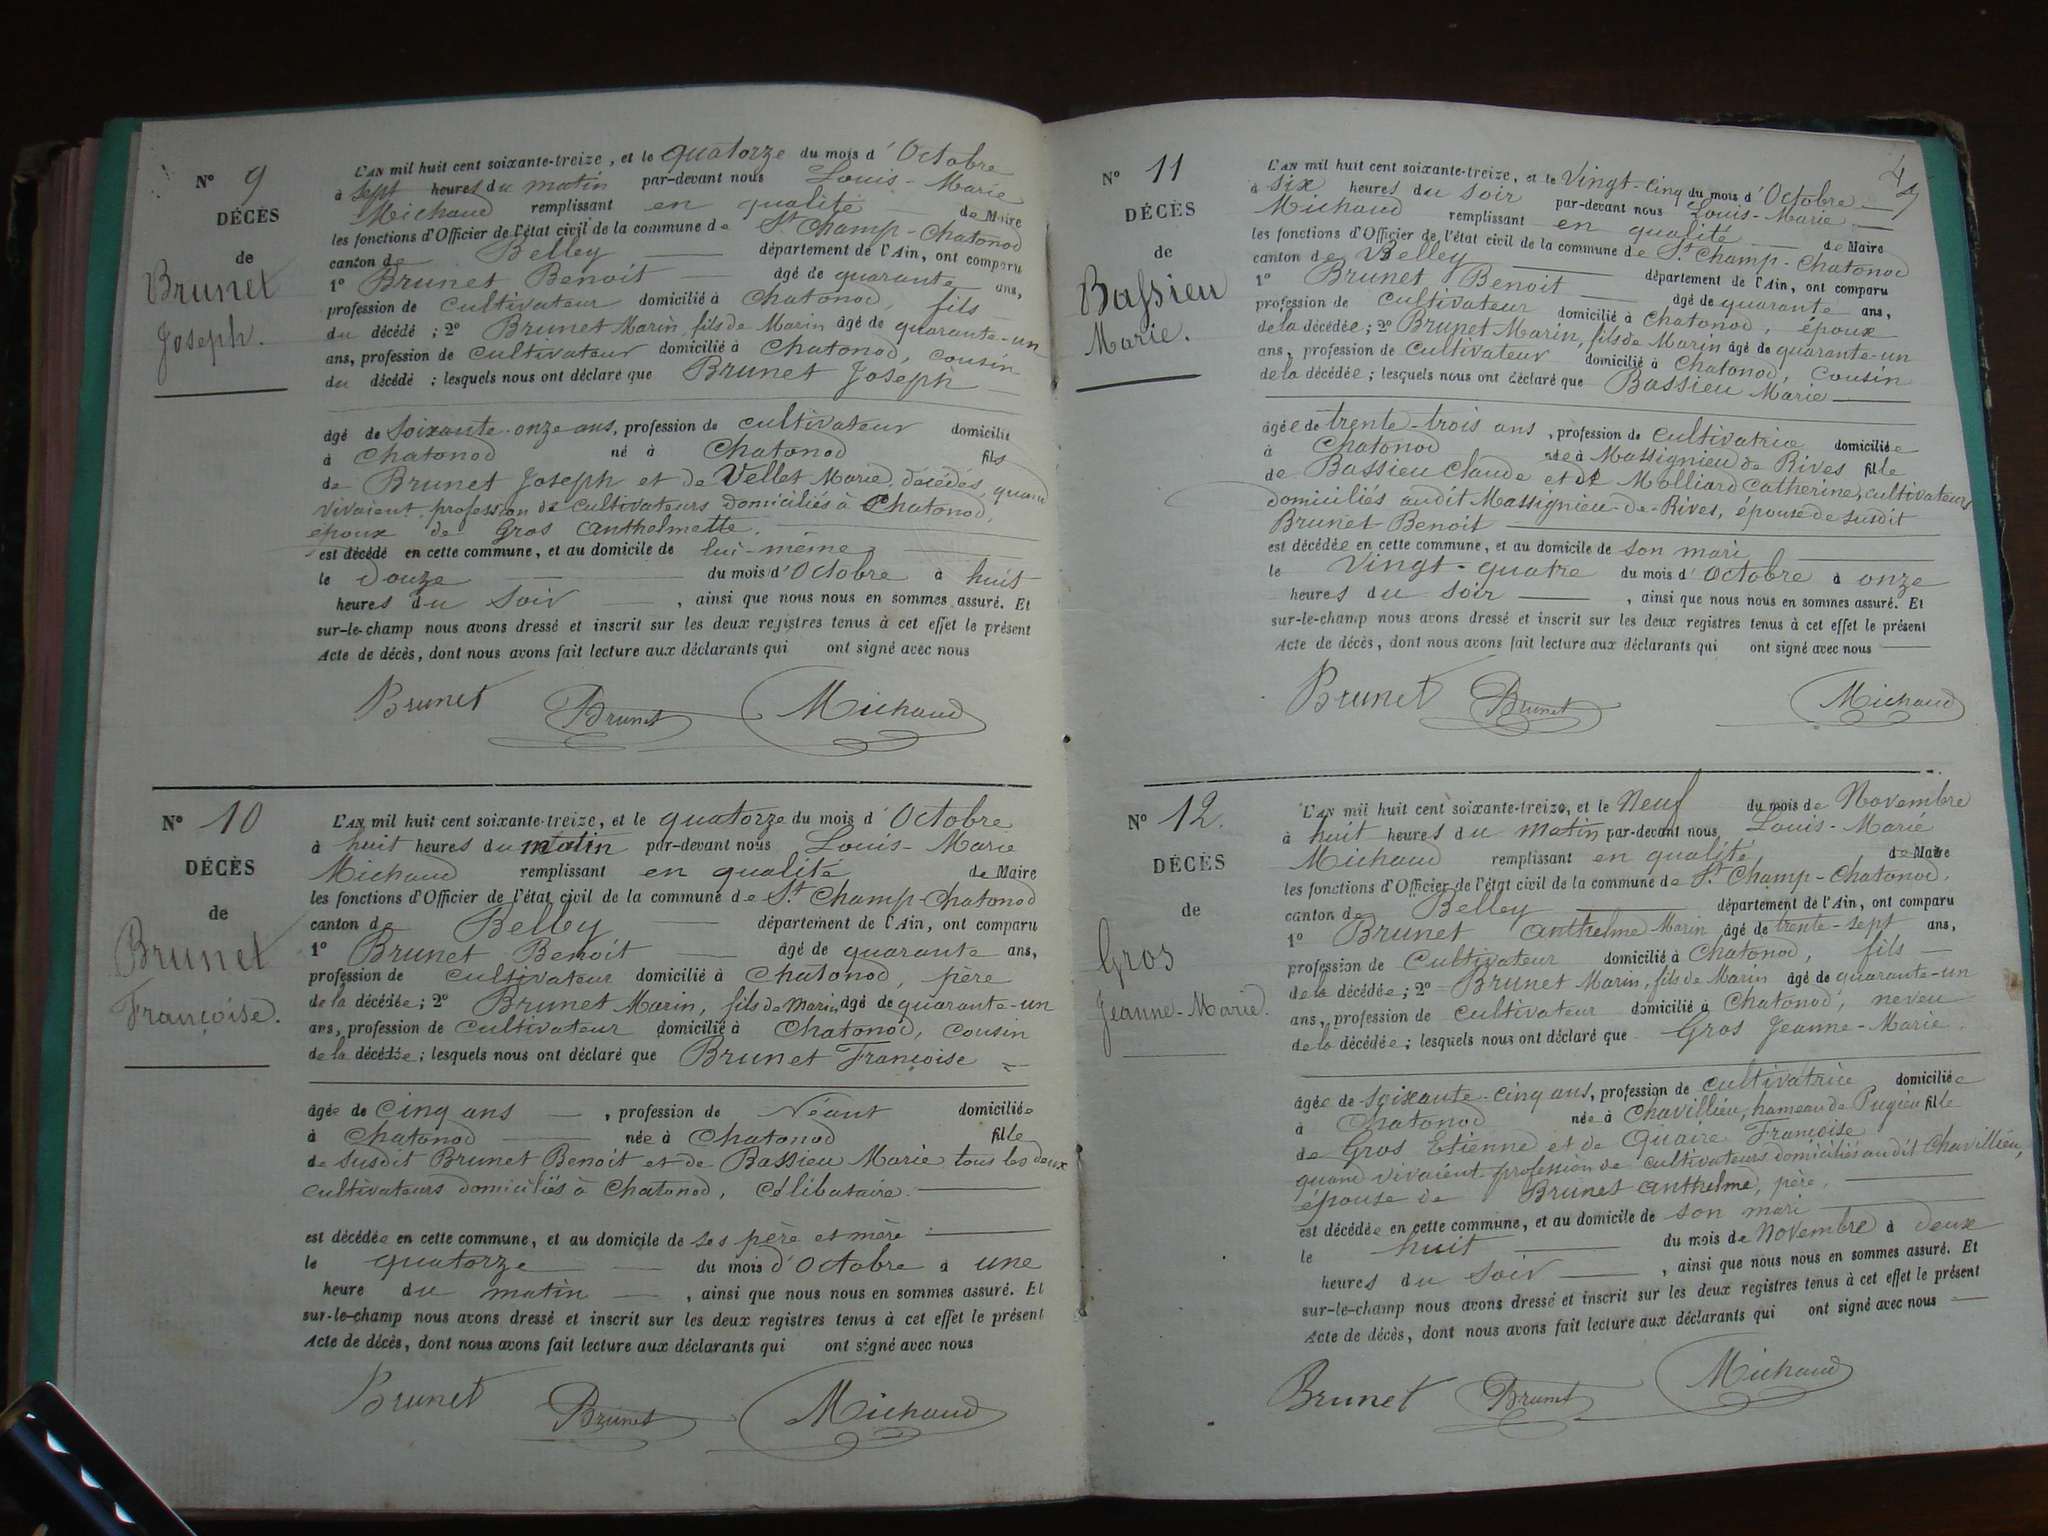 N° 9
DÉCÈS
de
Brunet
Joseph.
L'AN mil huit cent soixante-treize, et le quatorze du mois d'Octobre
à sept heures du matin par-devant nous Louis-Marie
Michaud remplissant en qualité de Maire
les fonctions d'Officier de l'état civil de la commune de St Champ-Chatonod
canton de Belley département de l'Ain, ont comparu
1° Brunet Benoit âgé de quarante ans,
profession de cultivateur domicilié à Chatonod, fils
du décédé ; 2° Brunet Marin, fils de Marin âgé de quarante-un
ans, profession de cultivateur domicilié à Chatonod, cousin
du décédé ; lesquels nous ont déclaré que Brunet Joseph
âgé de soixante-onze ans, profession de cultivateur domicilié
à Chatonod né à Chatonod fils
de Brunet Joseph et de Vellet Marie, décédés, quand
vivaient profession de cultivateurs domiciliés à Chatonod,
époux de Gros Anthelmette.
est décédé en cette commune, et au domicile de lui-même
le douze du mois d'Octobre à huit
heures du soir, ainsi que nous nous en sommes assuré. Et
sur-le-champ nous avons dressé et inscrit sur les deux registres tenus à cet effet le présent
Acte de décès, dont nous avons fait lecture aux déclarants qui ont signé avec nous
Brunet Brunet Michaud
N° 10
DÉCÈS
de
Brunet
Françoise.
L'AN mil huit cent soixante-treize, et le quatorze du mois d'Octobre
à huit heures du matin par-devant nous Louis-Marie
Michaud remplissant en qualité de Maire
les fonctions d'Officier de l'état civil de la commune de St Champ-Chatonod
canton de Belley département de l'Ain, ont comparu
1° Brunet Benoit âgé de quarante ans,
profession de cultivateur domicilié à Chatonod, père
de la décédée ; 2° Brunet Marin, fils de Marin âgé de quarante-un
ans, profession de cultivateur domicilié à Chatonod, cousin
de la décédée ; lesquels nous ont déclaré que Brunet Françoise
âgée de cinq ans, profession de Néant domiciliée
à Chatonod née à Chatonod fille
de susdit Brunet Benoit et de Bassieu Marie tous les deux
cultivateurs domiciliés à Chatonod, Célibataire.
est décédée en cette commune, et au domicile de ses père et mère
le quatorze du mois d'Octobre à une
heure du matin, ainsi que nous nous en sommes assuré. Et
sur-le-champ nous avons dressé et inscrit sur les deux registres tenus à cet effet le présent
Acte de décès, dont nous avons fait lecture aux déclarants qui ont signé avec nous
Brunet Brunet Michaud
N° 11
DÉCÈS
de
Bassieu
Marie.
L'AN mil huit cent soixante-treize, et le Vingt-Cinq du mois d'Octobre
à six heures du soir par-devant nous Louis-Marie
Michaud remplissant en qualité de Maire
les fonctions d'Officier de l'état civil de la commune de St Champ-Chatonod
canton de Belley département de l'Ain, ont comparu
1° Brunet Benoit âgé de quarante ans,
profession de cultivateur domicilié à Chatonod, époux
de la décédée ; 2° Brunet Marin, fils de Marin âgé de quarante-un
ans, profession de cultivateur domicilié à Chatonod, cousin
de la décédée ; lesquels nous ont déclaré que Bassieu Marie
âgée de trente-trois ans, profession de cultivatrice domiciliée
à Chatonod née à Massignieu de Rives fille
de Bassieu Claude et de Molliard Catherine, cultivateurs
domiciliés audit Massignieu-de-Rives, épouse de susdit
Brunet Benoit
est décédée en cette commune, et au domicile de son mari
le Vingt-quatre du mois d'Octobre à onze
heures du soir, ainsi que nous nous en sommes assuré. Et
sur-le-champ nous avons dressé et inscrit sur les deux registres tenus à cet effet le présent
Acte de décès, dont nous avons fait lecture aux déclarants qui ont signé avec nous
Brunet Brunet Michaud
N° 12.
DÉCÈS
de
Gros
Jeanne-Marie.
L'AN mil huit cent soixante-treize, et le Neuf du mois de Novembre
à huit heures du matin par-devant nous Louis-Marie
Michaud remplissant en qualité de Maire
les fonctions d'Officier de l'état civil de la commune de St Champ-Chatonod,
canton de Belley département de l'Ain, ont comparu
1° Brunet Anthelme Marin âgé de trente-sept ans,
profession de Cultivateur domicilié à Chatonod, fils
de la décédée ; 2° Brunet Marin, fils de Marin âgé de quarante-un
ans, profession de cultivateur domicilié à Chatonod, neveu
de la décédée ; lesquels nous ont déclaré que Gros Jeanne-Marie.
âgée de soixante-cinq ans, profession de cultivatrice domiciliée
à Chatonod née à Chavillieu, hameau de Pugieu fille
de Gros Etienne et de Quaire Françoise
quand vivaient profession de cultivateurs domiciliés audit Chavillieu,
épouse de Brunet Anthelme, père.
est décédée en cette commune, et au domicile de son mari
le huit du mois de Novembre à deux
heures du soir, ainsi que nous nous en sommes assuré. Et
sur-le-champ nous avons dressé et inscrit sur les deux registres tenus à cet effet le présent
Acte de décès, dont nous avons fait lecture aux déclarants qui ont signé avec nous
Brunet Brunet Michaud